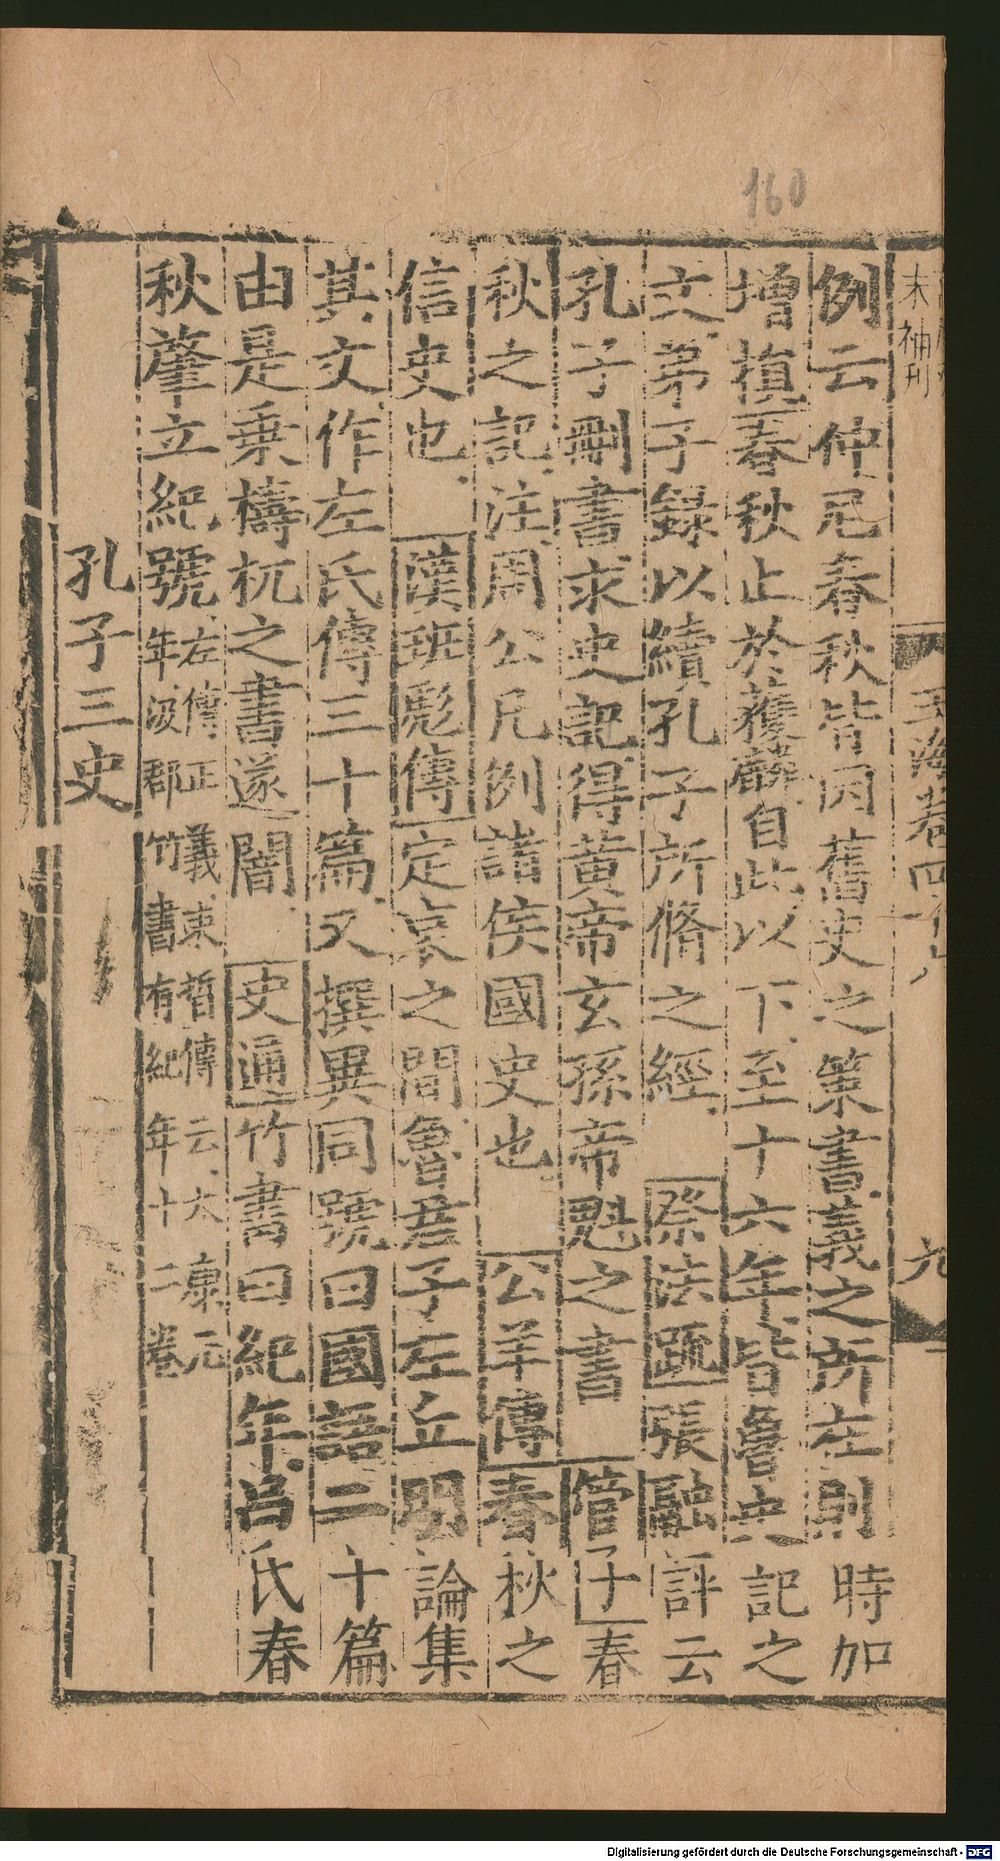 160
玉海卷四十六
九
例云仲尼春秋皆因舊史之策書義之所在則時加
增損春秋止於獲麟自此以下至十六年皆魯史記之
文弟子錄以續孔子所脩之經 祭法䟽張融評云
孔子刪書求史記得黃帝玄孫帝魁之書 管子春
秋之記注周公凡例諸侯國史也 公羊傳春秋之
信史也 漢班彪傳定哀之間魯君子左丘明論集
其文作左氏傳三十篇又撰異同號曰國語二十篇
由是乗檮杌之書遂闇 史通竹書曰紀年吕氏春
秋肇立紀號左傳正義束晳傳云大康元
年汲郡竹書有紀年十二卷
孔子三史
Digitalisierung gefördert durch die Deutsche Forschungsgemeinschaft - DFG